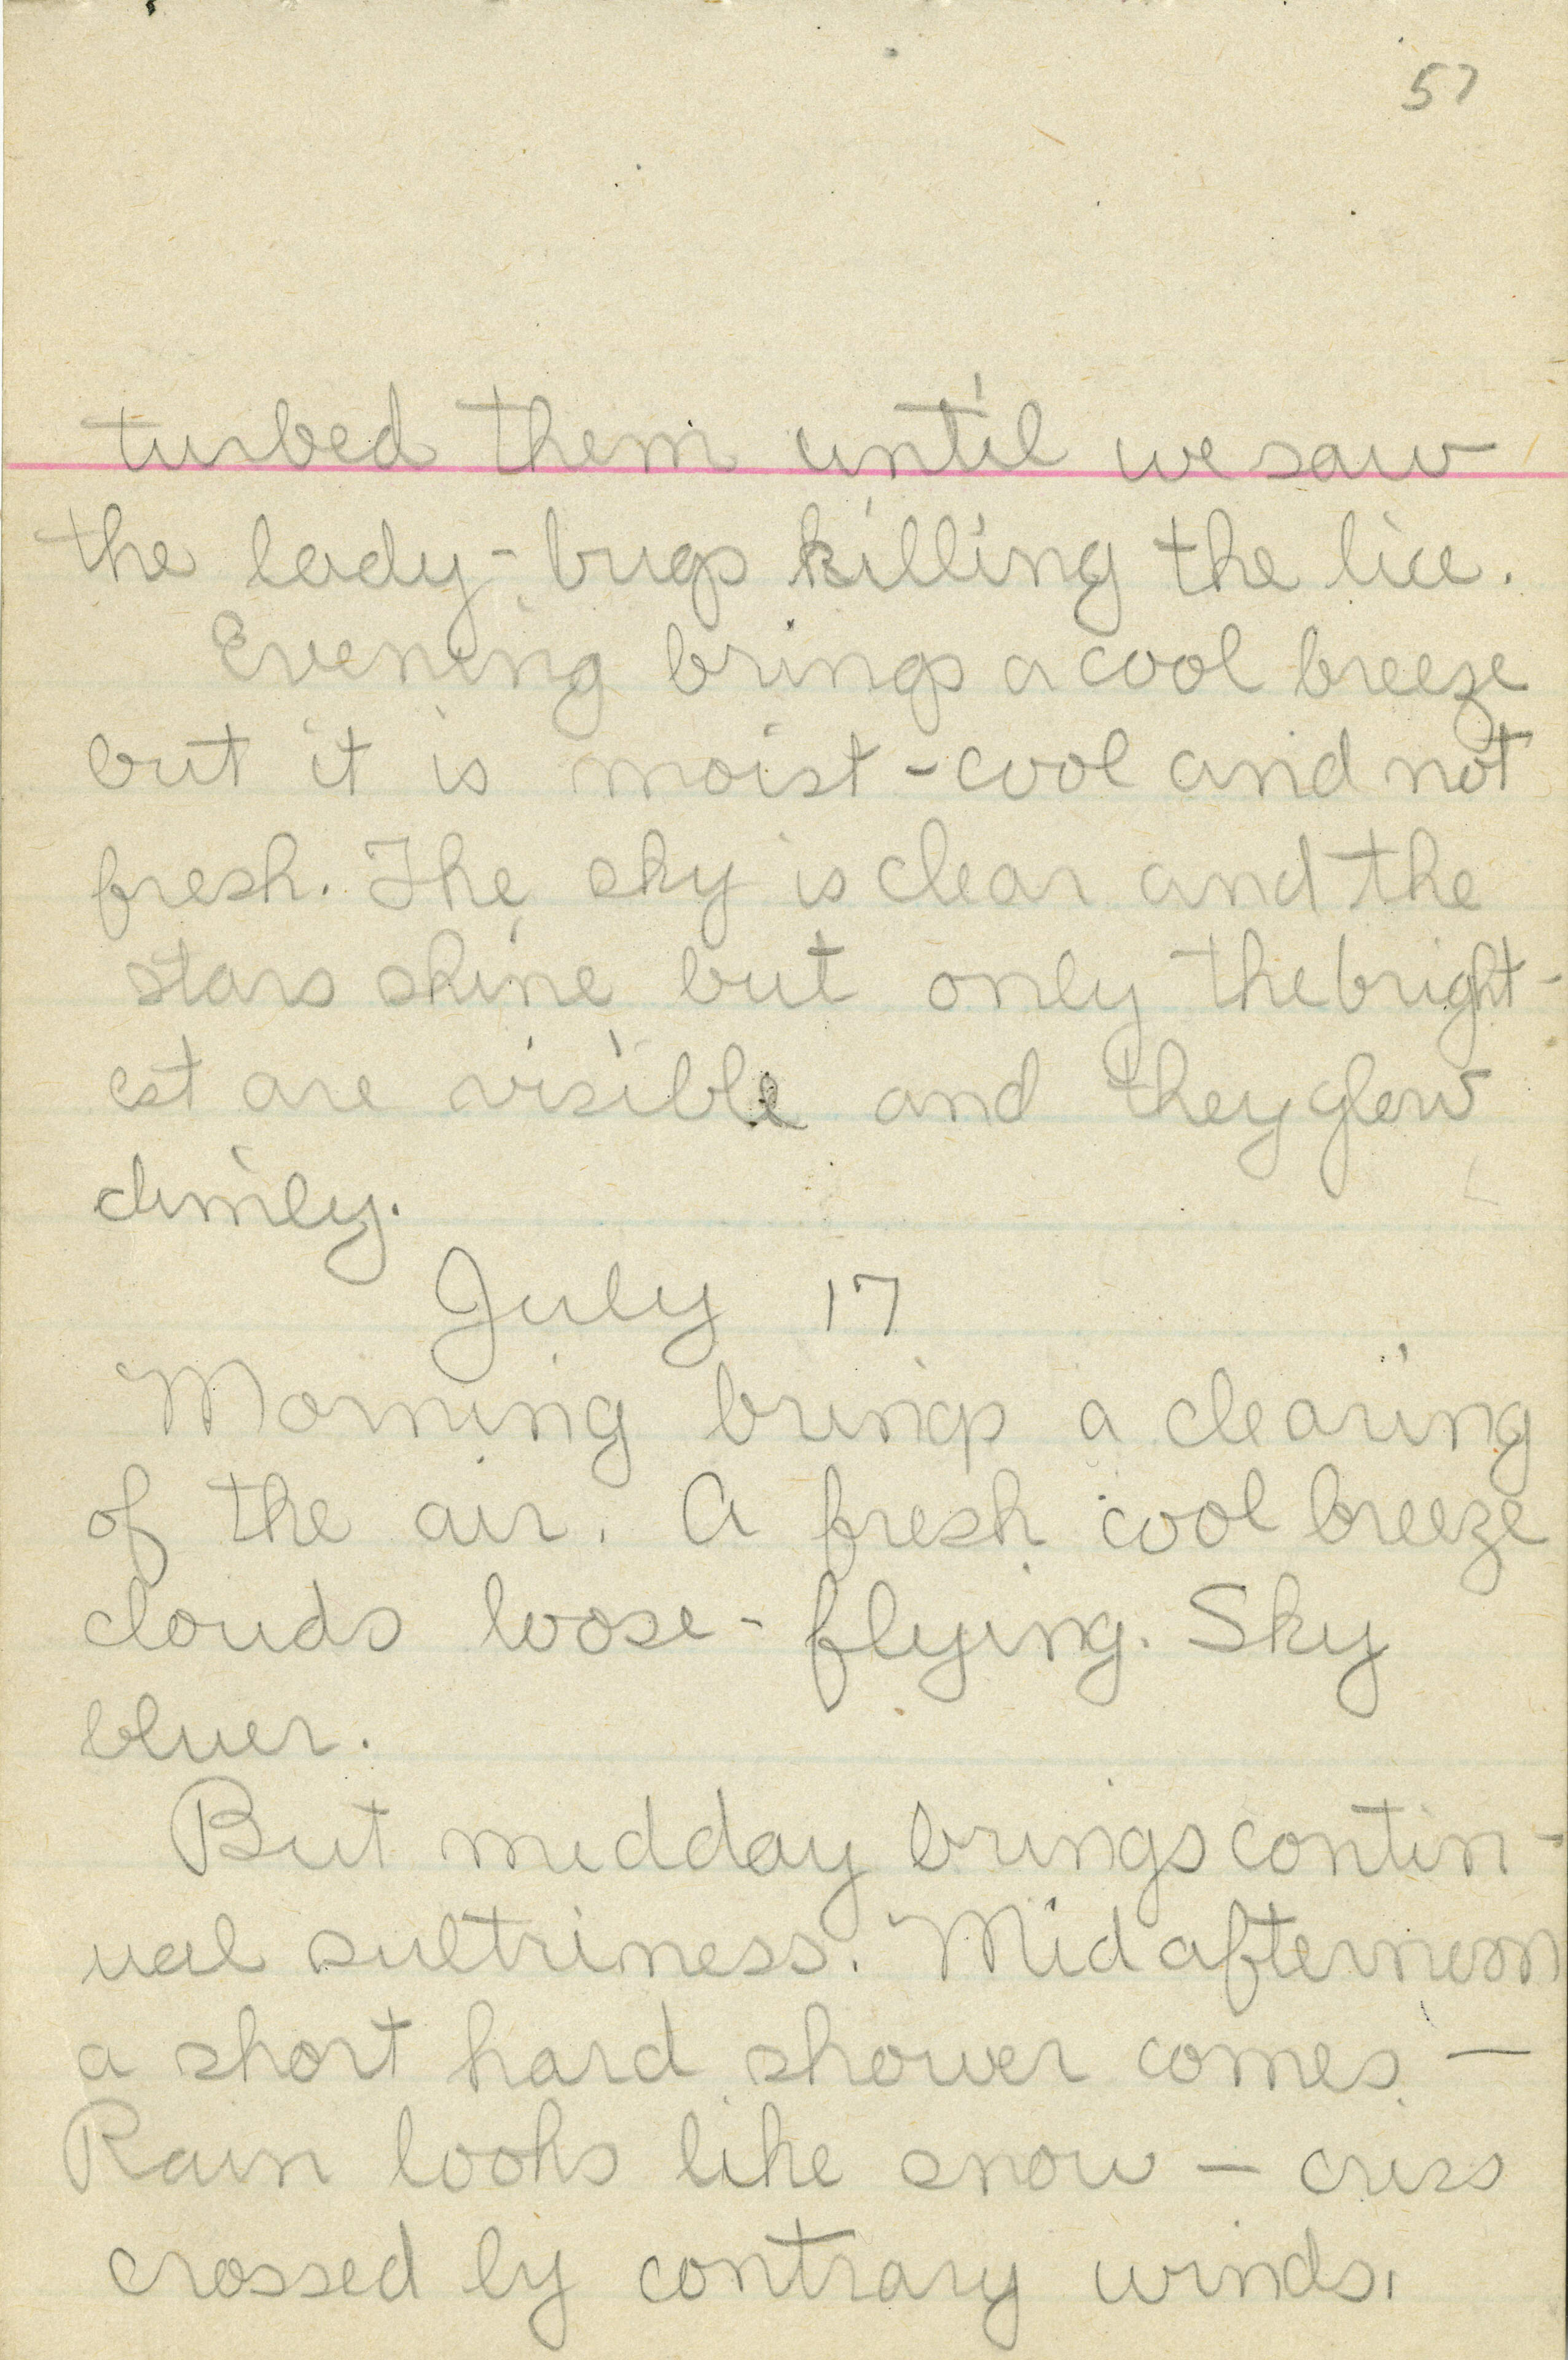 57
turbed them until we saw
the lady-bugs killing the lice.
Evening brings a cool breeze
but it is moist-cool and not
fresh. The sky is clear and the
stars shine but only the bright-
est are visible and they glow
dimly.
July 17
Morning brings a clearing
of the air. A fresh cool breeze
clouds loose-flying. Sky
bluer.
But midday brings contin-
ual sultriness. Mid afternoon
a short hard shower comes —
Rain looks like snow — criss
crossed by contrary winds.